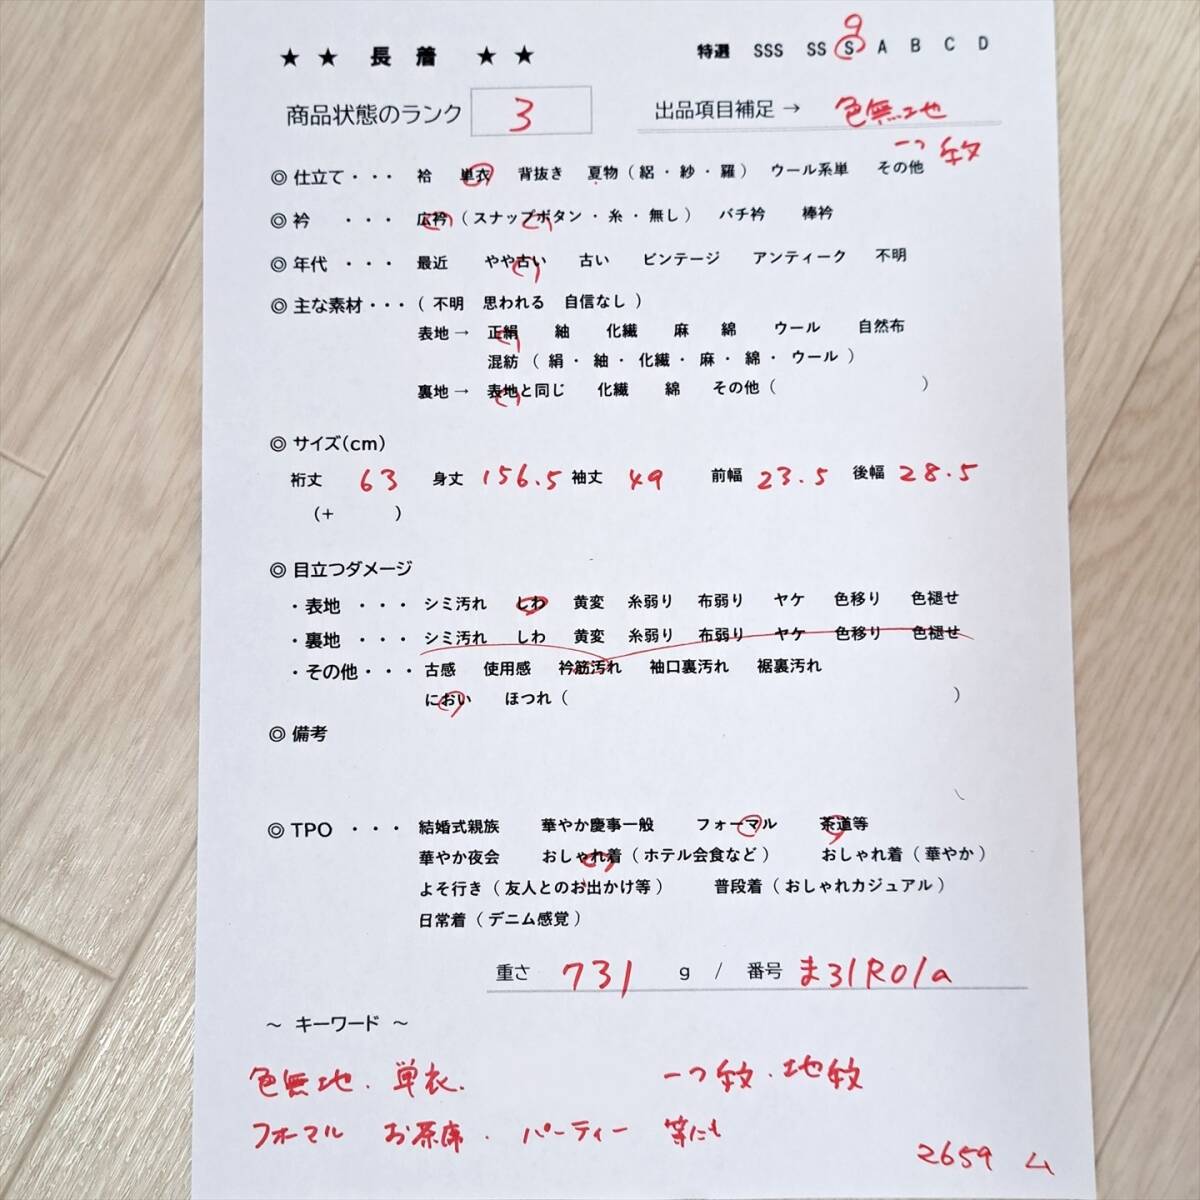 9
★ ★ 長 着 ★ ★ 特選 SSS SS S A B C D
商品状態のランク 3 出品項目補足 → 色無地
一つ紋
◎ 仕立て・・・ 袷 単衣 背抜き 夏物（絽・紗・羅） ウール系単 その他
◎ 衿 ・・・ 広衿（スナップボタン・糸・無し） バチ衿 棒衿
◎ 年代 ・・・ 最近 やや古い 古い ビンテージ アンティーク 不明
◎ 主な素材・・・（ 不明 思われる 自信なし ）
表地 → 正絹 紬 化繊 麻 綿 ウール 自然布
混紡（ 絹・紬・化繊・麻・綿・ウール ）
裏地 → 表地と同じ 化繊 綿 その他（ ）
◎ サイズ(cm)
裄丈 63 身丈 156.5 袖丈 49 前幅 23.5 後幅 28.5
(+ )
◎ 目立つダメージ
・表地 ・・・ シミ汚れ しわ 黄変 糸弱り 布弱り ヤケ 色移り 色褪せ
・裏地 ・・・ シミ汚れ しわ 黄変 糸弱り 布弱り ヤケ 色移り 色褪せ
・その他・・・ 古感 使用感 衿筋汚れ 袖口裏汚れ 裾裏汚れ
におい ほつれ（ ）
◎ 備考
◎ TPO ・・・ 結婚式親族 華やか慶事一般 フォーマル 茶道等
華やか夜会 おしゃれ着（ホテル会食など） おしゃれ着（華やか）
よそ行き（友人とのお出かけ等） 普段着（おしゃれカジュアル）
日常着（デニム感覚）
重さ 731 g / 番号 ま31R01a
～ キーワード ～
色無地・単衣. 一つ紋・地紋
フォーマル お茶席・パーティー 等にも
2659 ム